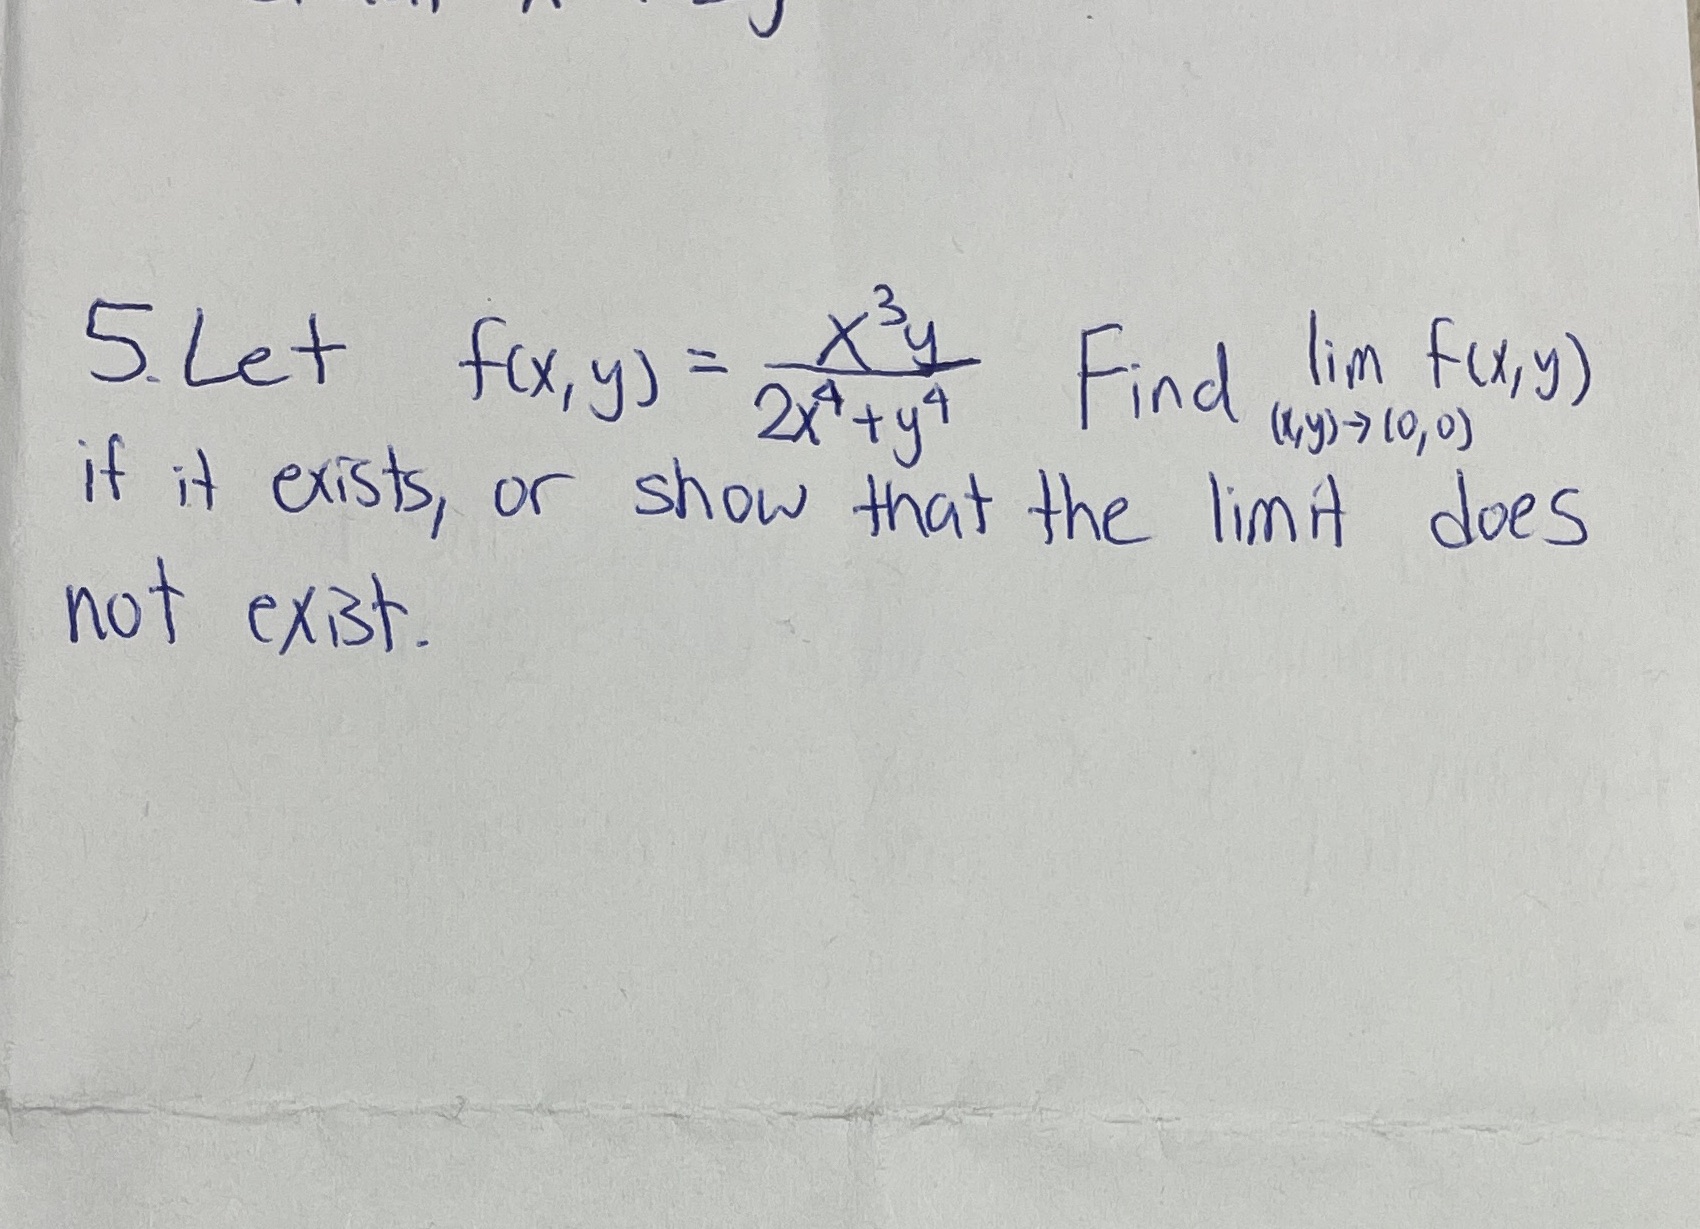 5. Let f(x,y) = x³y / 2x⁴+y⁴ Find lim (x,y)→(0,0) f(x,y)
if it exists, or show that the limit does
not exist.